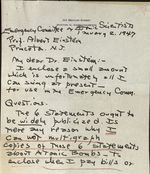 Emergency Committee of Atomic Scientists
Prof. Albert Einstein
Princeton N.J.
My dear Dr. Einstein:-
I enclose a small amount
which is unfortunately all I
can send at present
for use in the Emergency Comm.
Questions.
The 6 statements ought to
be widely publicized. Is
there any reason why I
can not mimeograph
Copies of those 6 statements
about Atomic Bombs to
enclose when I pay bills or